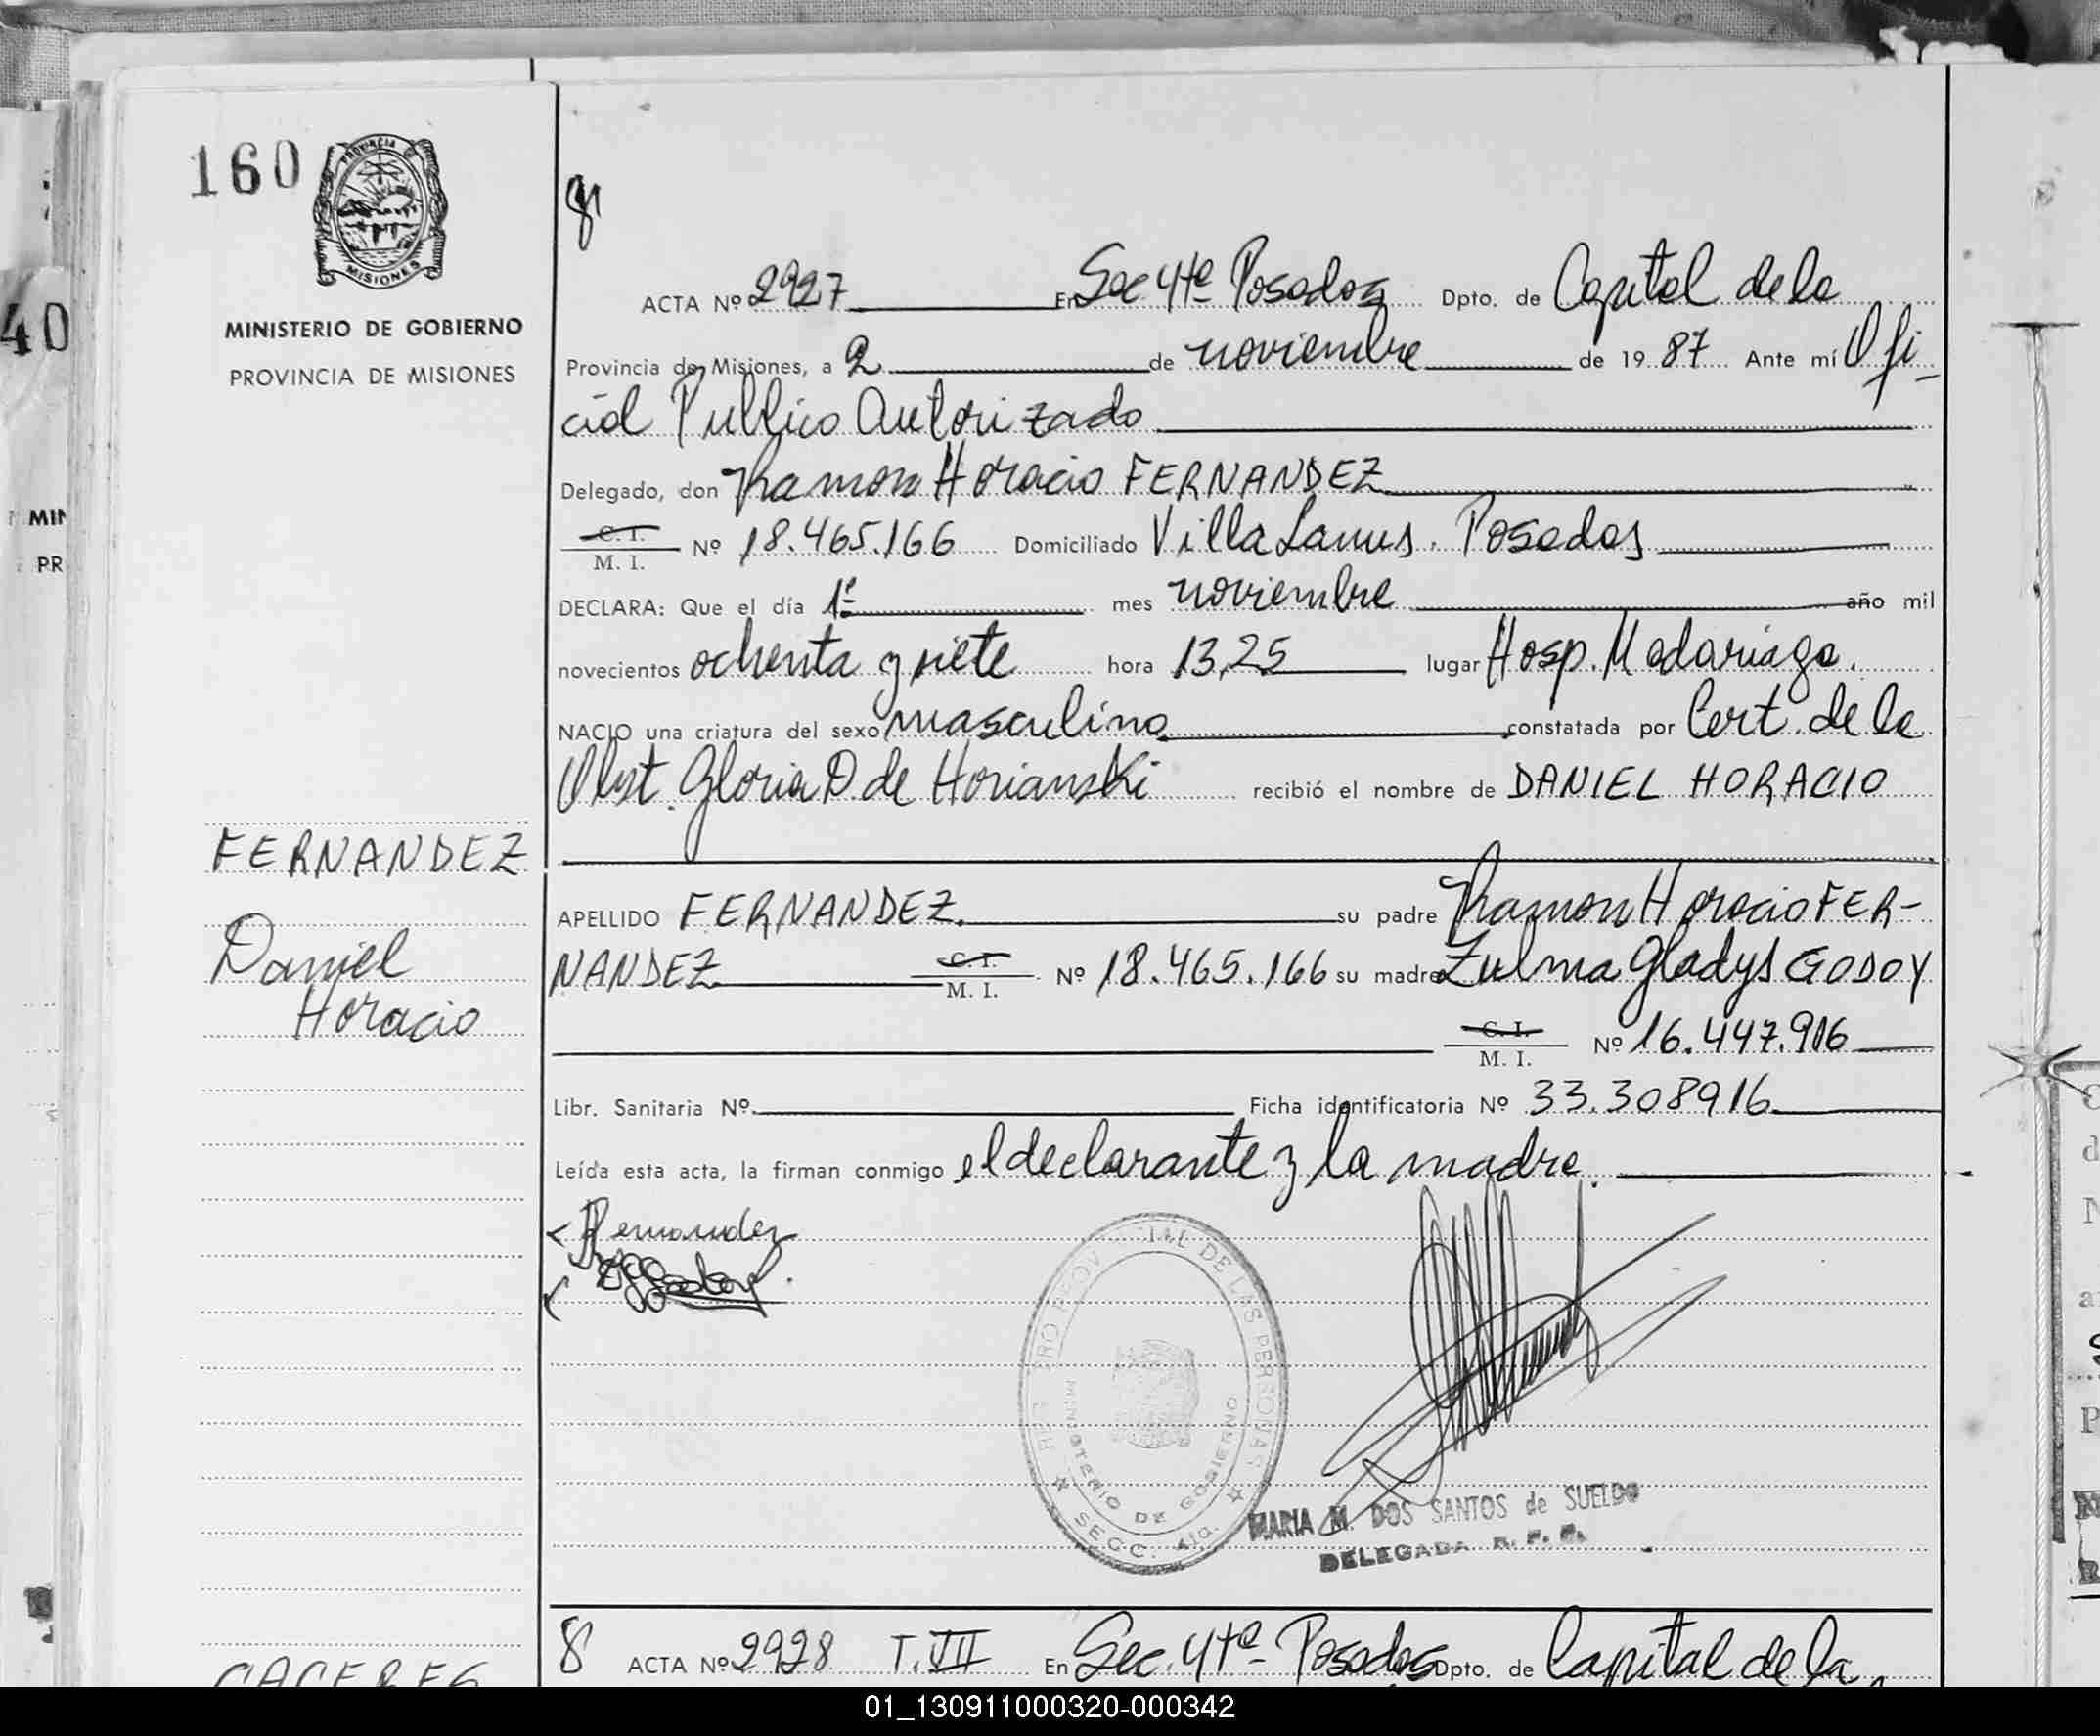 160
PROVINCIA DE
MISIONES
MINISTERIO DE GOBIERNO
PROVINCIA DE MISIONES
40
MIN
PR
ACTA Nº 2927 En Sec 4ta Posadas Dpto. de Capital de la
Provincia de Misiones, a 2 de noviembre de 19 87 Ante mí Ofi-
cial Publico Autorizado
Delegado, don Ramon Horacio FERNANDEZ
C. I.
M. I. Nº 18.465.166 Domiciliado Villa Lanus. Posadas
DECLARA: Que el día 1º mes noviembre año mil
novecientos ochenta y siete hora 13,25 lugar Hosp. Madariaga.
NACIO una criatura del sexo masculino constatada por Cert. de la
Obst. Gloria D. de Horianski recibió el nombre de DANIEL HORACIO
FERNANDEZ
Daniel
Horacio
APELLIDO FERNANDEZ. su padre Ramon Horacio FER-
NANDEZ C. I. M. I. Nº 18.465.166 su madre Zulma Gladys GODOY
C. I.
M. I. Nº 16.447.916
Libr. Sanitaria Nº. Ficha identificatoria Nº 33.308916
Leída esta acta, la firman conmigo el declarante y la madre.
Fernandez
REGISTRO PROVINCIAL DE LAS PERSONAS
MINISTERIO DE GOBIERNO
SECC. 4ta.
MARIA M. DOS SANTOS de SUELDO
DELEGADA R. P. P.
8 ACTA Nº 2928 T. VII En Sec. 4ta Posadas Dpto. de Capital de la
CACERES
01_130911000320-000342